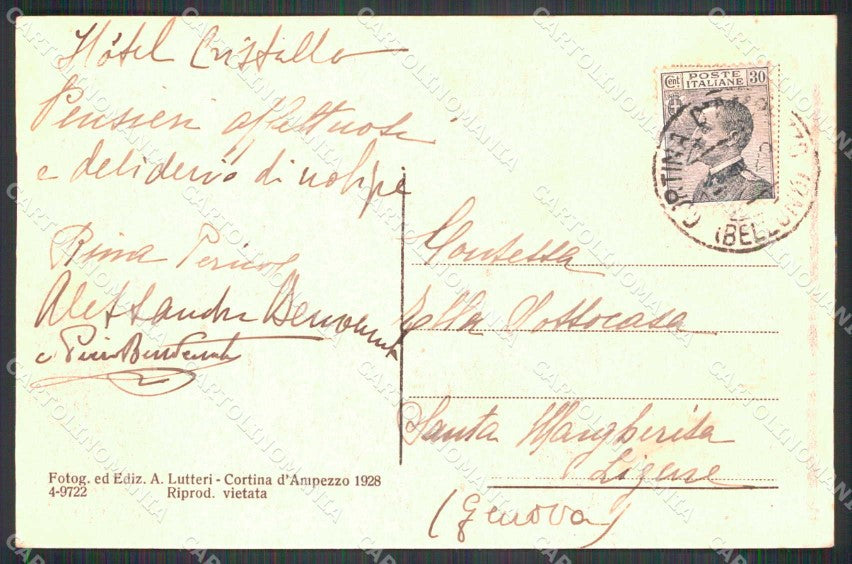 Hôtel Cristallo
Pensieri affettuosi
e desiderio di notizie
Rina
Alessandra Benvenuti
e Piero Benvenuti
Fotog. ed Ediz. A. Lutteri - Cortina d'Ampezzo 1928
4-9722 Riprod. vietata
Cent POSTE ITALIANE 30
CORTINA D'AMPEZZO
(BELLUNO)
Contessa
Ella Sottocasa
Santa Margherita
Ligure
(Genova)
CARTOLINOMANIA